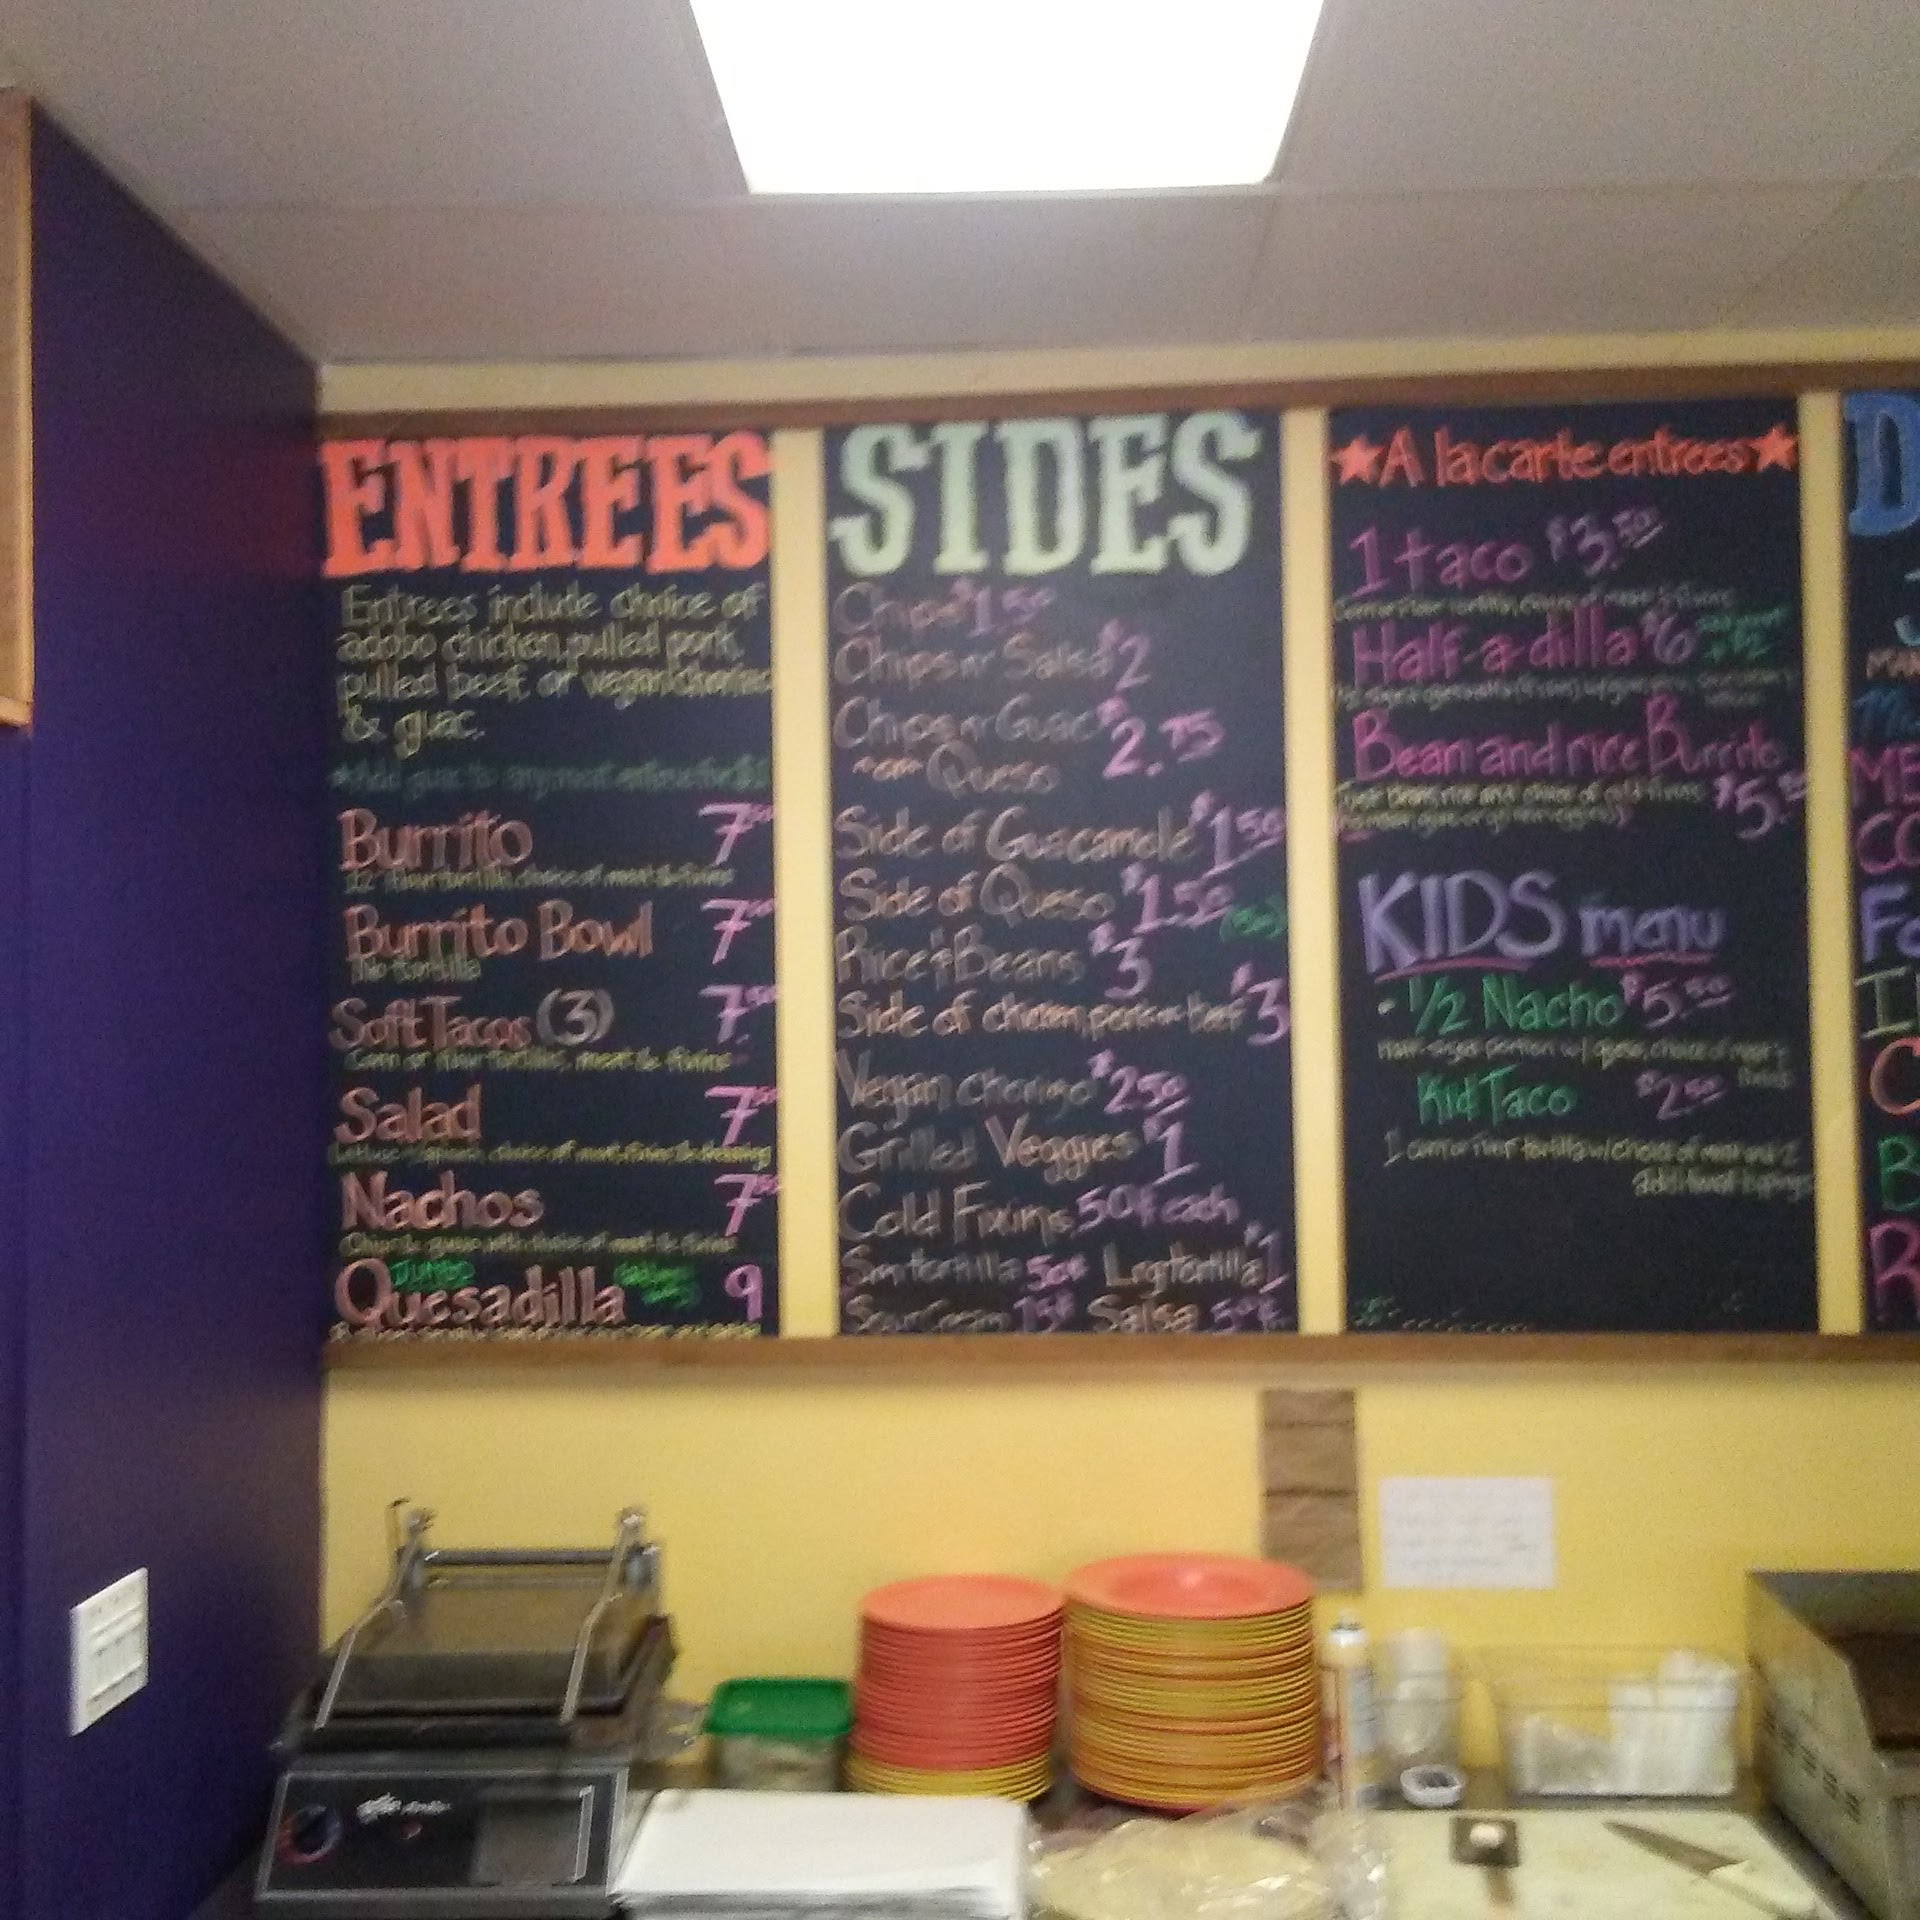 ENTREES
Entrees include choice of
adobo chicken, pulled pork,
pulled beef, or vegan chorizo
& guac.
*Add guac to any meat entree for
Burrito 7
12" flour tortilla, choice of meat & fixins
Burrito Bowl 7
No tortilla
Soft Tacos (3) 7.50
Corn or flour tortillas, meat & fixins
Salad 7
choice of meat, fixins & dressing
Nachos 7
Chips & queso with choice of meat & fixins
JUMBO
Quesadilla 9
SIDES
Chips $1.50
Chips n' Salsa $2
Chips n' Guac $2.75
~or~ Queso
Side of Guacamole $1.50
Side of Queso $1.50
Rice & Beans $3
Side of chicken, pork or beef $3
Vegan chorizo $2.50
Grilled Veggies $1
Cold Fixins 50¢ each
Sm tortilla 50¢ Lrg tortilla $1
Sour Cream 75¢ Salsa 50¢
★A la carte entrees★
1 taco $3.50
Corn or flour tortilla, choice of meat & fixins
Half-a-dilla $6
Bean and rice Burrito
$5.50
KIDS menu
- 1/2 Nacho $5.50
Half-sized portion w/ queso, choice of meat &
fixins
Kid Taco $2.50
1 corn or flour tortilla w/ choice of meat and 2
additional toppings
D
J
MA
ME
CO
Fo
I
C
B
R